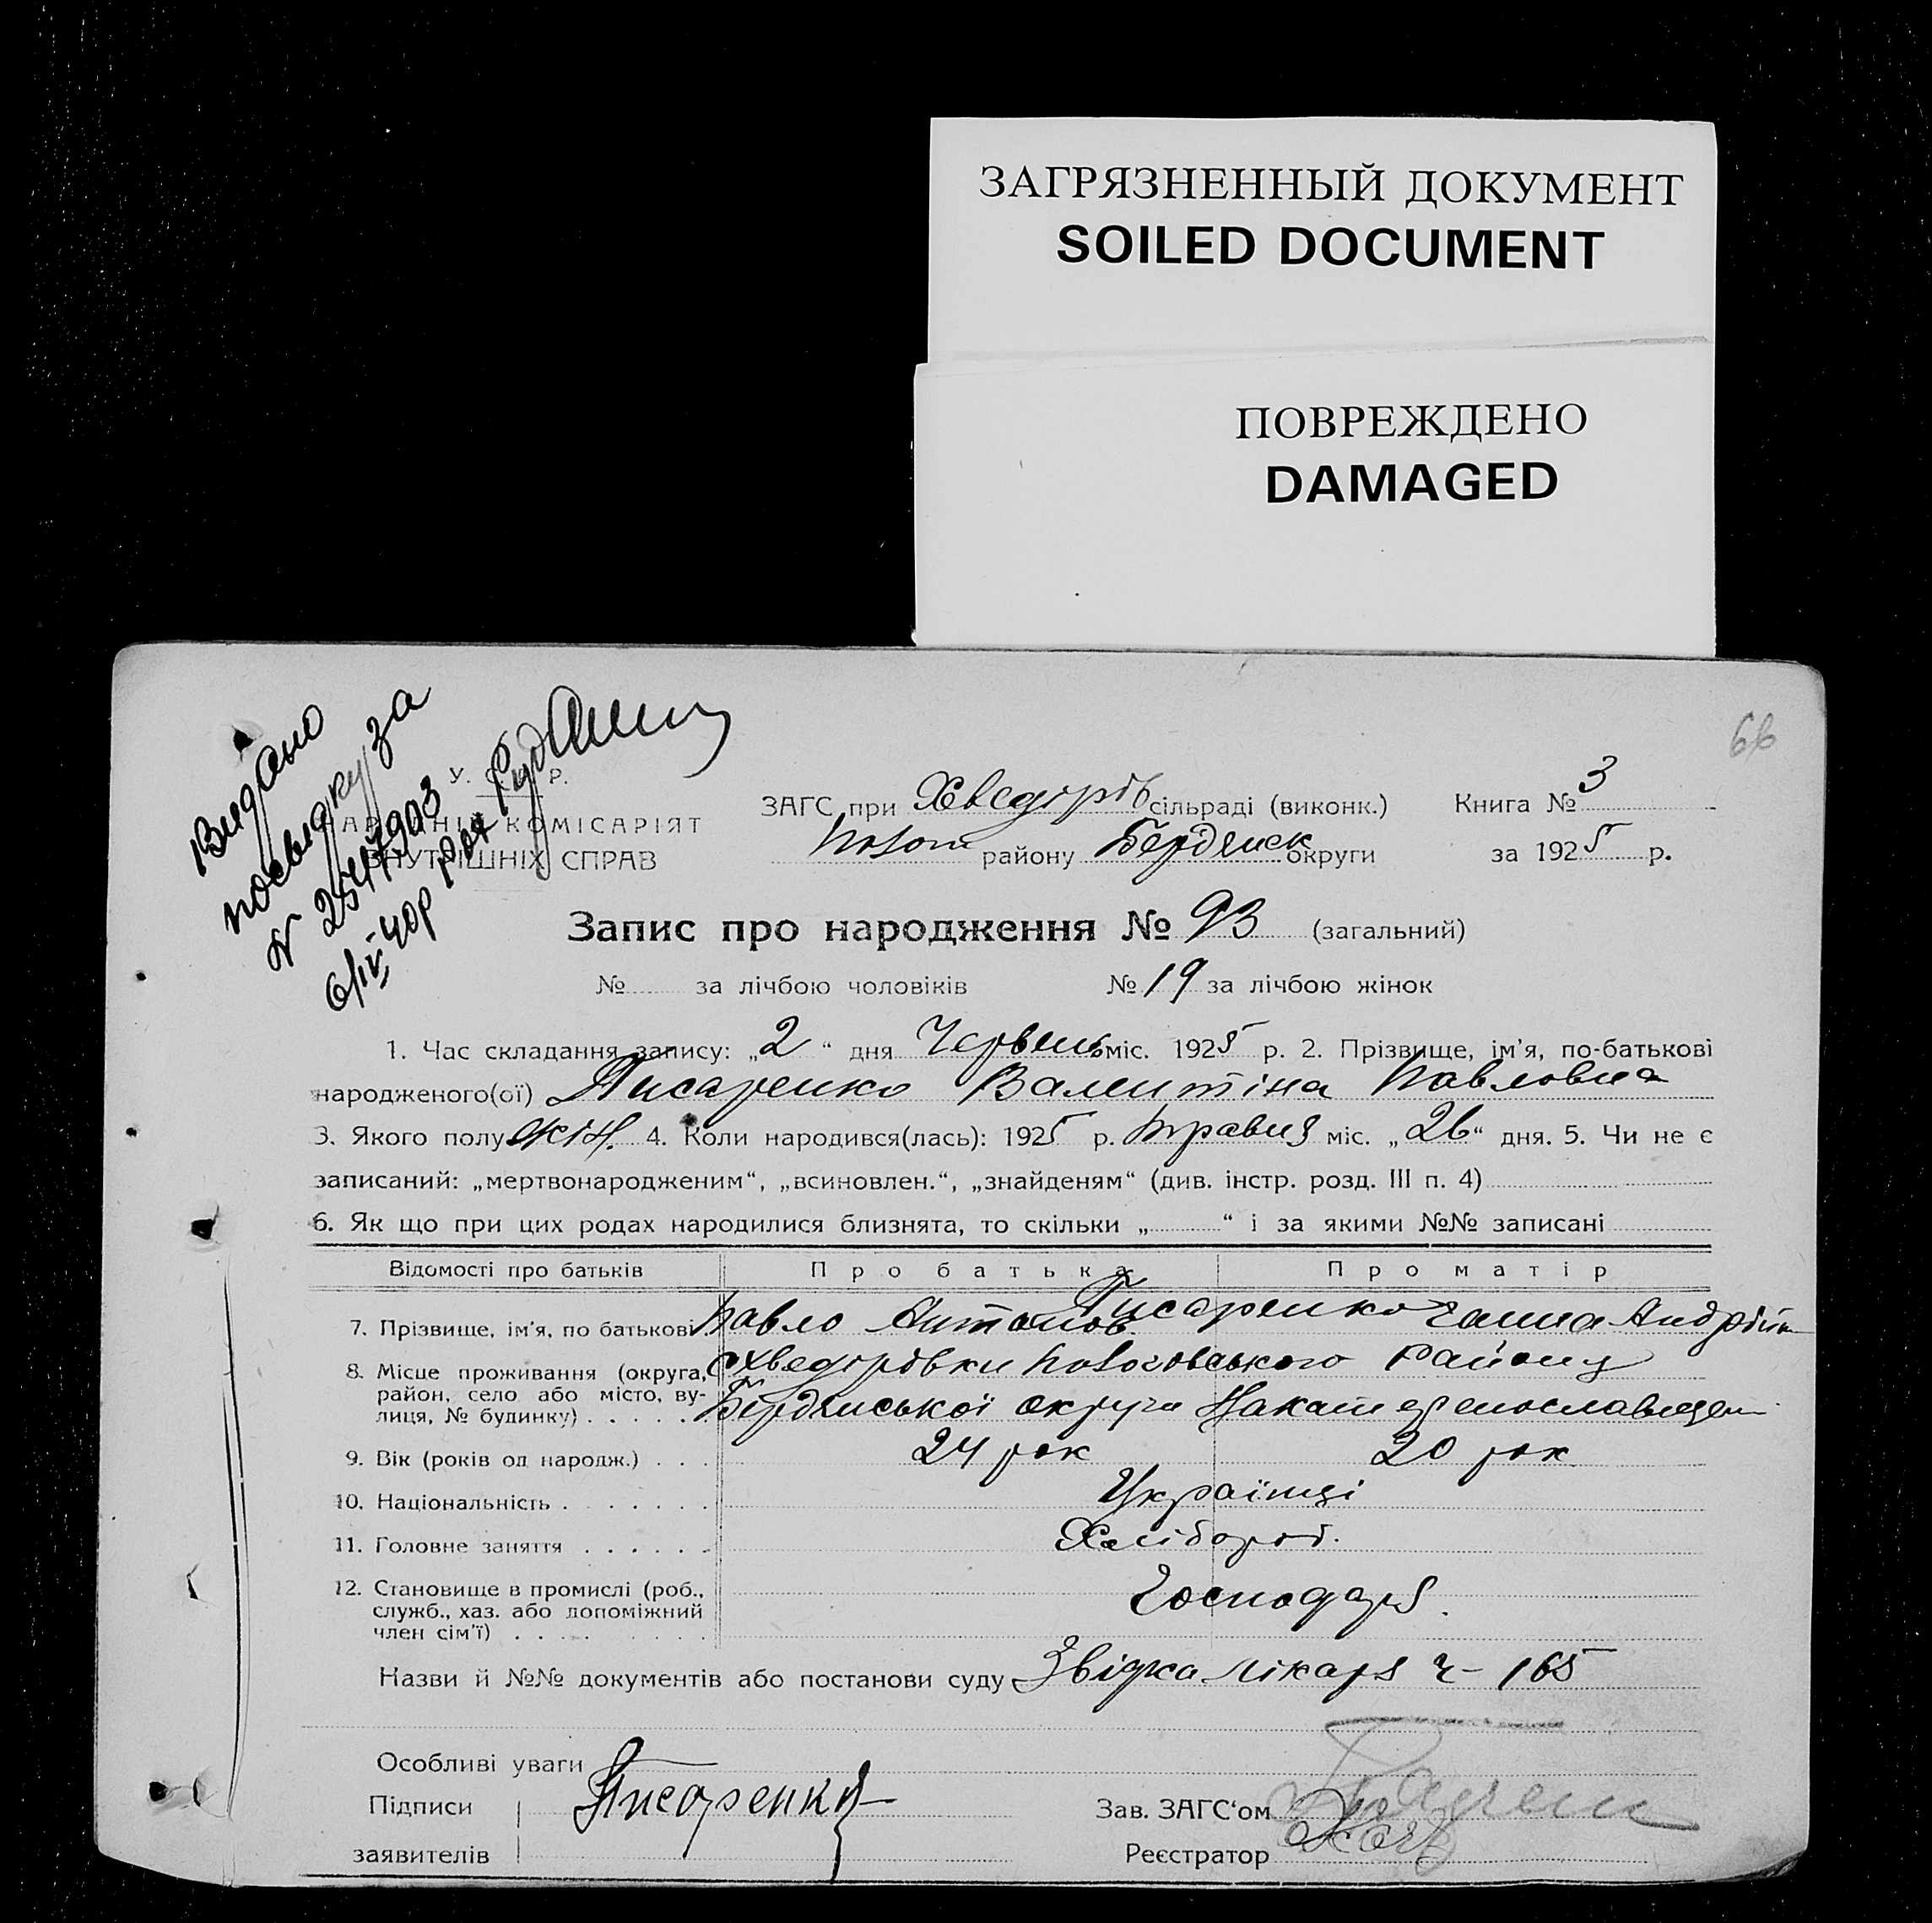 ЗАГРЯЗНЕННЫЙ ДОКУМЕНТ
SOILED DOCUMENT
ПОВРЕЖДЕНО
DAMAGED
66
Видано
посвідку за
№
У. Р.
КОМІСАРІЯТ
ВНУТРІШНІХ СПРАВ
ЗАГС при Хведорів сільраді (виконк.) Книга № 3
району Бердянск округи за 1925 р.
Запис про народження № 93 (загальний)
№ за лічбою чоловіків № 19 за лічбою жінок
1. Час складання запису: „2“ дня Червень міс. 1925 р. 2. Прізвище, ім'я, по-батькові
народженого(ої) Писаренко Валентіна Павловна
3. Якого полу жін. 4. Коли народився(лась): 1925 р. Травня міс. „26“ дня. 5. Чи не є
записаний: „мертвонародженим“, „всиновлен.“, „знайденям“ (див. інстр. розд. III п. 4)
6. Як що при цих родах народилися близнята, то скільки „ “ і за якими №№ записані
Відомості про батьків Про батька Про матір
7. Прізвище, ім'я, по батькові Павло Антонов. Писаренко Ганна Андрійв
8. Місце проживання (округа, Хведорівки Ногоговського Району
район, село або місто, ву- Бердянської округи
лиця, № будинку)
9. Вік (років од народж.) 24 рок 20 рок
10. Національність Українці
11. Головне заняття Хлібороб.
12. Становище в промислі (роб., Господаря
служб., хаз. або допоміжний
член сім'ї)
Назви й №№ документів або постанови суду Звідка лікаря ч- 165
Особливі уваги
Підписи Писаренко Зав. ЗАГС'ом
заявителів Реєстратор